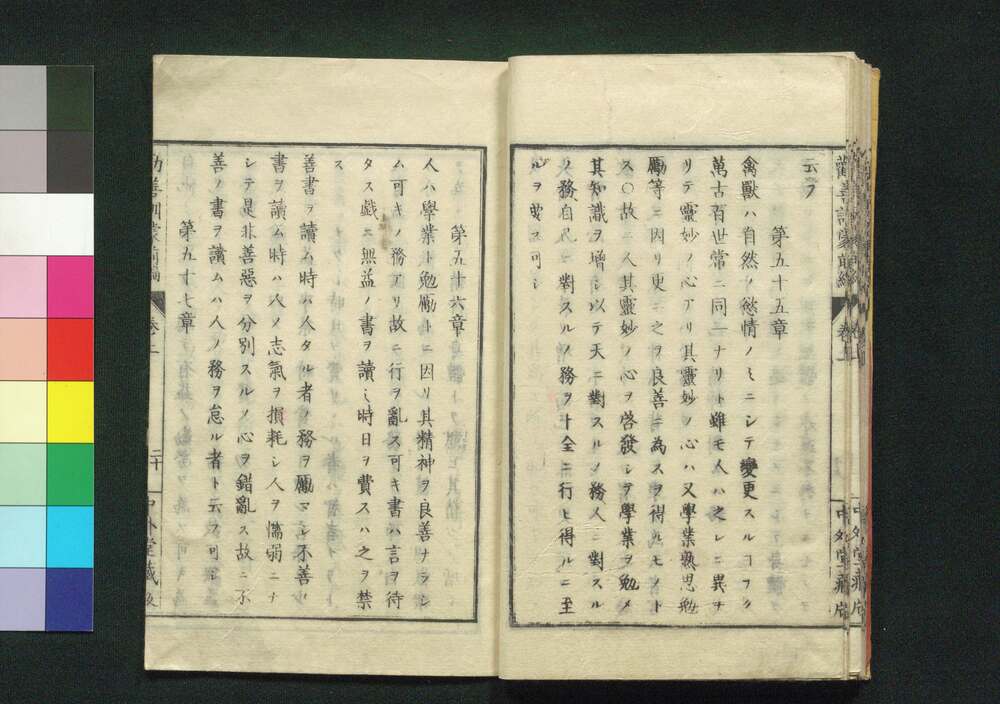 勸善訓蒙前編
卷上
中外堂藏版
云フ
第五十五章
禽獸ハ自然ノ慾情ノミニシテ變更スルコナク
萬古百世常ニ同一ナリト雖モ人ハ之レニ異ナ
リテ靈妙ノ心アリ其靈妙ノ心ハ又學業熟思勉
勵等ニ因リ更ニ之ヲ良善ニ為スヲ得ルモノト
ス〇故ニ人其靈妙ノ心ヲ啓發シテ學業ヲ勉メ
其知識ヲ增シ以テ天ニ對スルノ務人ニ對スル
ノ務自己ニ對スルノ務ヲ十全ニ行ヒ得ルニ至
ルヲ要ス可シ
第五十六章
人ハ學業ト勉勵トニ因リ其精神ヲ良善ナラシ
ム可キノ務アリ故ニ行ヲ亂ス可キ書ハ言ヲ待
タス戯ニ無益ノ書ヲ讀ミ時日ヲ費スハ之ヲ禁
ス
善書ヲ讀ム時ハ人タル者ノ務ヲ勵マシ不善ノ
書ヲ讀ム時ハ人ノ志氣ヲ損耗シ人ヲ懦弱ニナ
シテ是非善惡ヲ分別スルノ心ヲ錯亂ス故ニ不
善ノ書ヲ讀ムハ人ノ務ヲ怠ル者ト云フ可シ
第五十七章
勸善訓蒙前編
卷上
二十
中外堂藏版